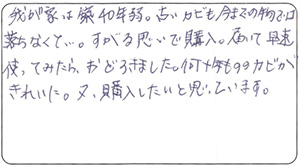 我が家は築40年弱。古いカビも今までの物では
落ちなくて…。すがる思いで購入。届いて早速
使ってみたら、おどろきました。何十年もののカビが
きれいに。又、購入したいと思っています。